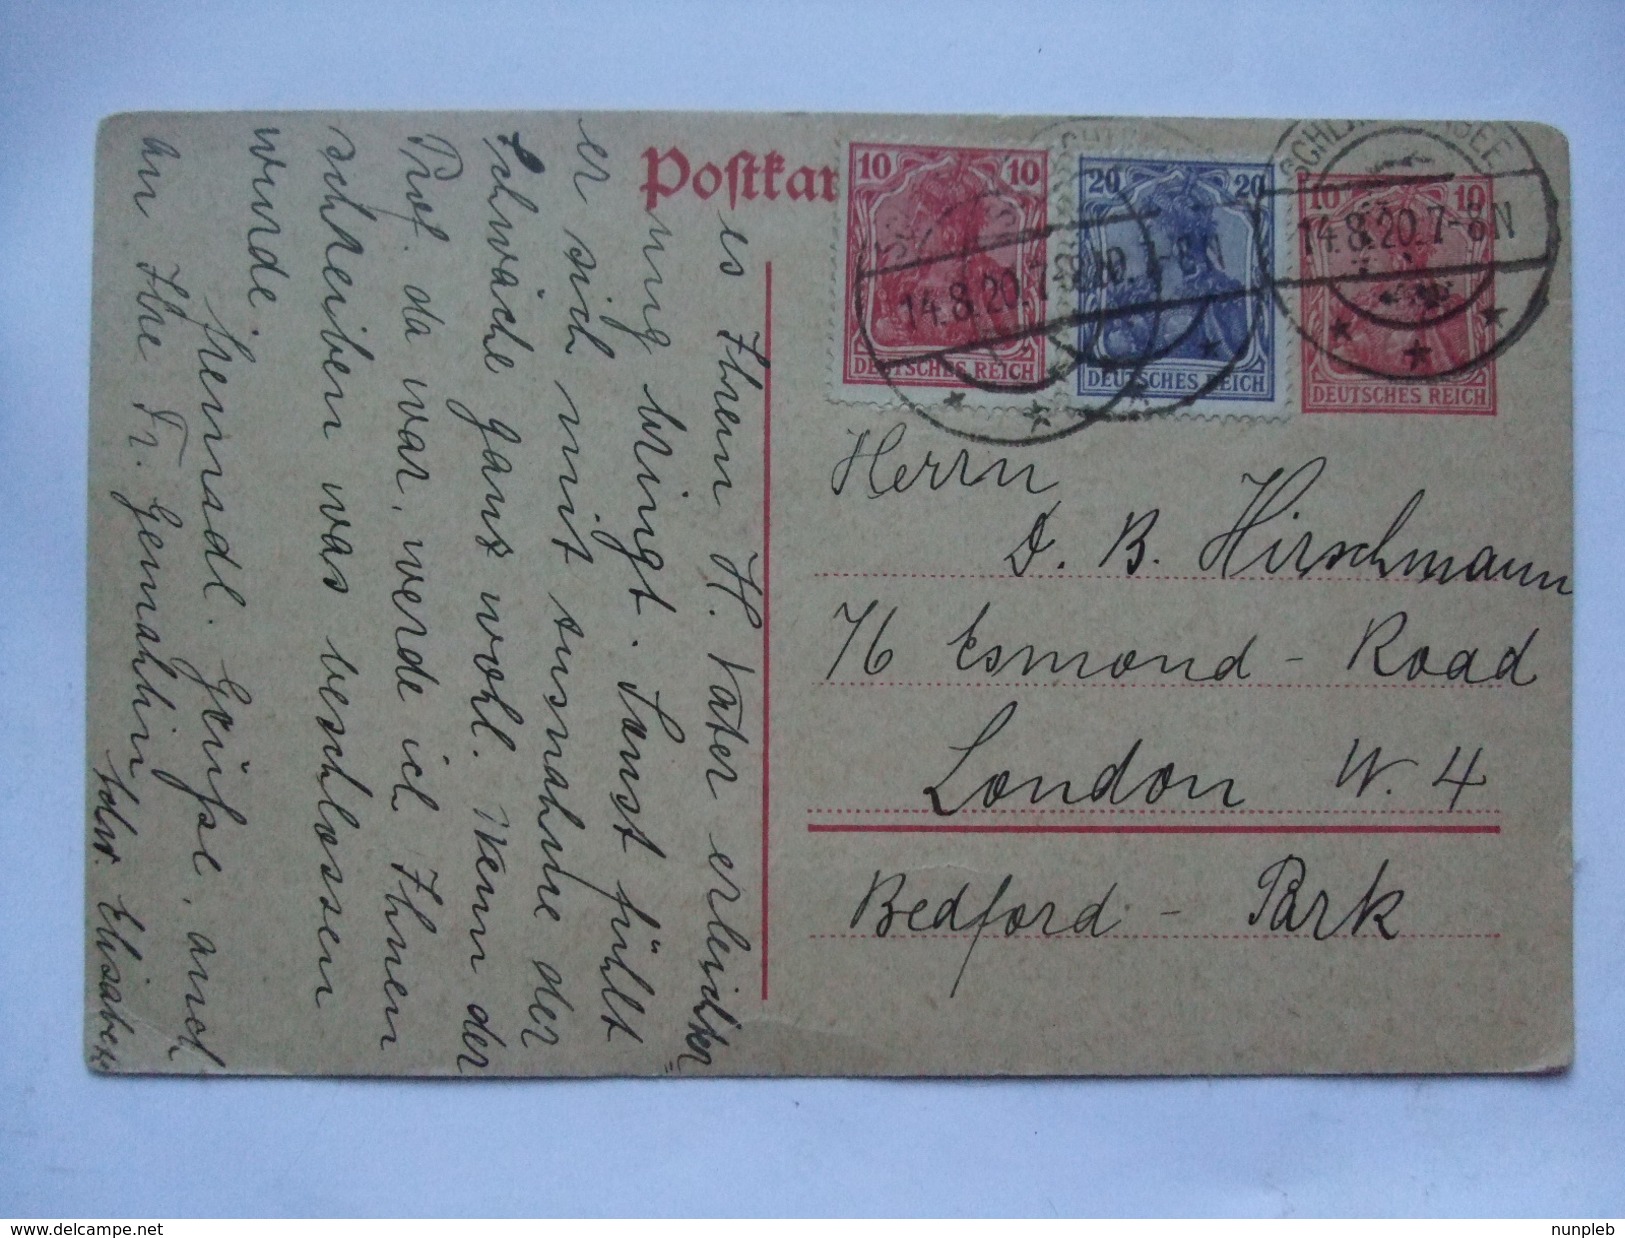 Postkar
10 10
DEUTSCHES REICH
20 20
DEUTSCHES REICH
10 10
DEUTSCHES REICH
14.8.20.7-8N
14.8.20.7-8N
Herrn
D. B. Hirschmann
76 Esmond - Road
London W. 4
Bedford - Park
es Ihrem H. Vater erleichter
ung bringt. Sonst fühlt
er sich mit Ausnahme der
Schwäche ganz wohl. Wenn der
Prof. da war, werde ich Ihnen
schreiben was beschlossen
wurde.
freundl. Grüsse, auch
an Ihre Fr. Gemahlin
Schw. Elisabeth
delcampe.net
nunpleb